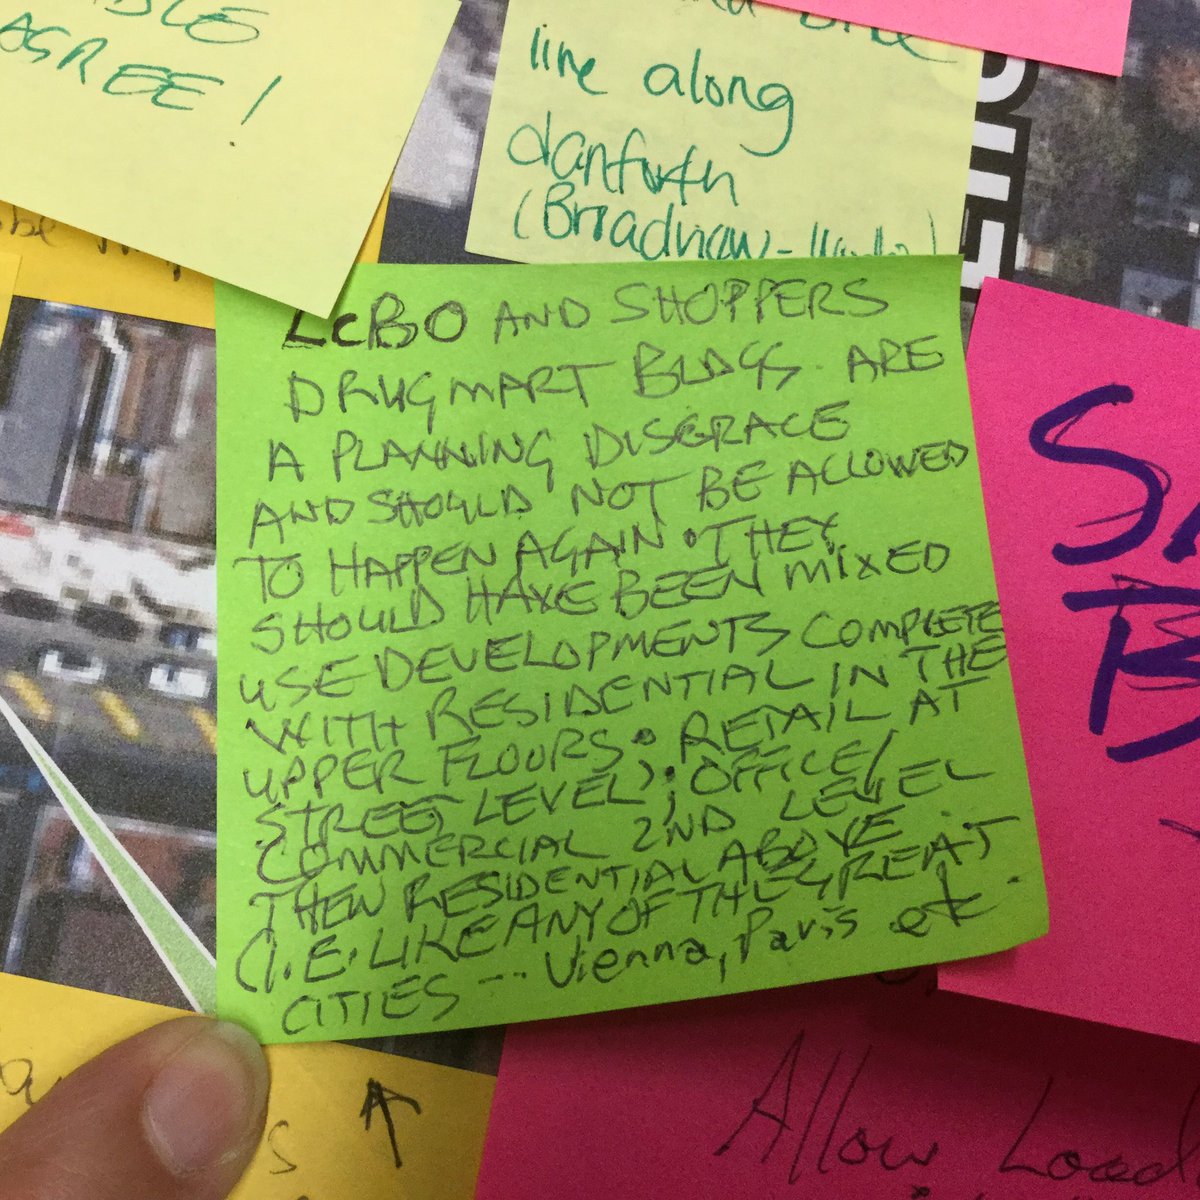 AGREE!
line along
danforth
LCBO AND SHOPPERS
DRUGMART BLDGS. ARE
A PLANNING DISGRACE
AND SHOULD NOT BE ALLOWED
TO HAPPEN AGAIN. THEY
SHOULD HAVE BEEN MIXED
USE DEVELOPMENTS COMPLETE
WITH RESIDENTIAL IN THE
UPPER FLOORS. RETAIL AT
STREET LEVEL; OFFICE/
COMMERCIAL 2ND LEVEL
THEN RESIDENTIAL ABOVE.
(I.E. LIKE ANY OF THE GREAT
CITIES -- Vienna, Paris etc.
Allow